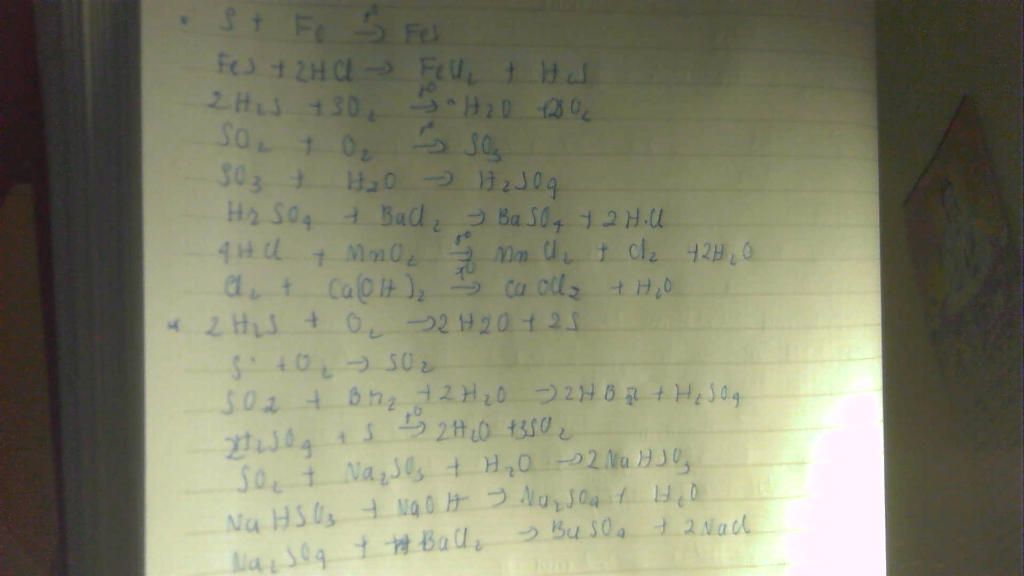 * S + Fe t°→ FeS
FeS + 2HCl → FeCl2 + H2S
2H2S + 3O2 t°→ 2H2O + 2SO2
SO2 + O2 t°→ SO3
SO3 + H2O → H2SO4
H2SO4 + BaCl2 → BaSO4 + 2HCl
4HCl + MnO2 t°→ MnCl2 + Cl2 + 2H2O
Cl2 + Ca(OH)2 t°→ CaOCl2 + H2O
* 2H2S + O2 → 2H2O + 2S
S + O2 → SO2
SO2 + Br2 + 2H2O → 2HBr + H2SO4
2H2SO4 + S t°→ 2H2O + 3SO2
SO2 + Na2SO3 + H2O → 2NaHSO3
NaHSO3 + NaOH → Na2SO4 + H2O
Na2SO4 + BaCl2 → BaSO4 + 2NaCl